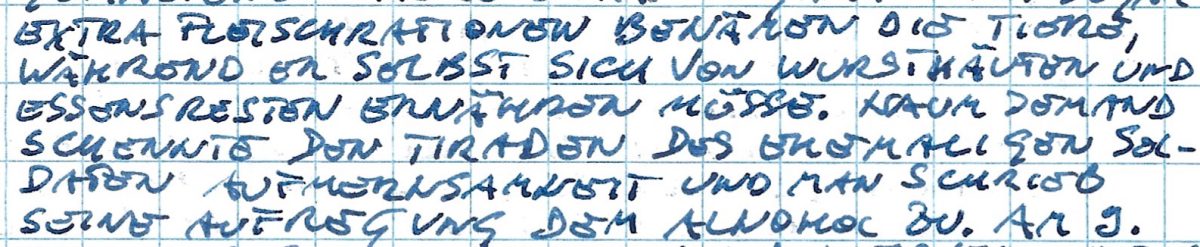 EXTRA FLEISCHRATIONEN BEKÄMEN DIE TIERE,
WÄHREND ER SELBST SICH VON WURSTHÄUTEN UND
ESSENSRESTEN ERNÄHREN MÜSSE. KAUM JEMAND
SCHENKTE DEN TIRADEN DES EHEMALIGEN SOL-
DATEN AUFMERKSAMKEIT UND MAN SCHRIEB
SEINE AUFREGUNG DEM ALKOHOL ZU. AM 9.